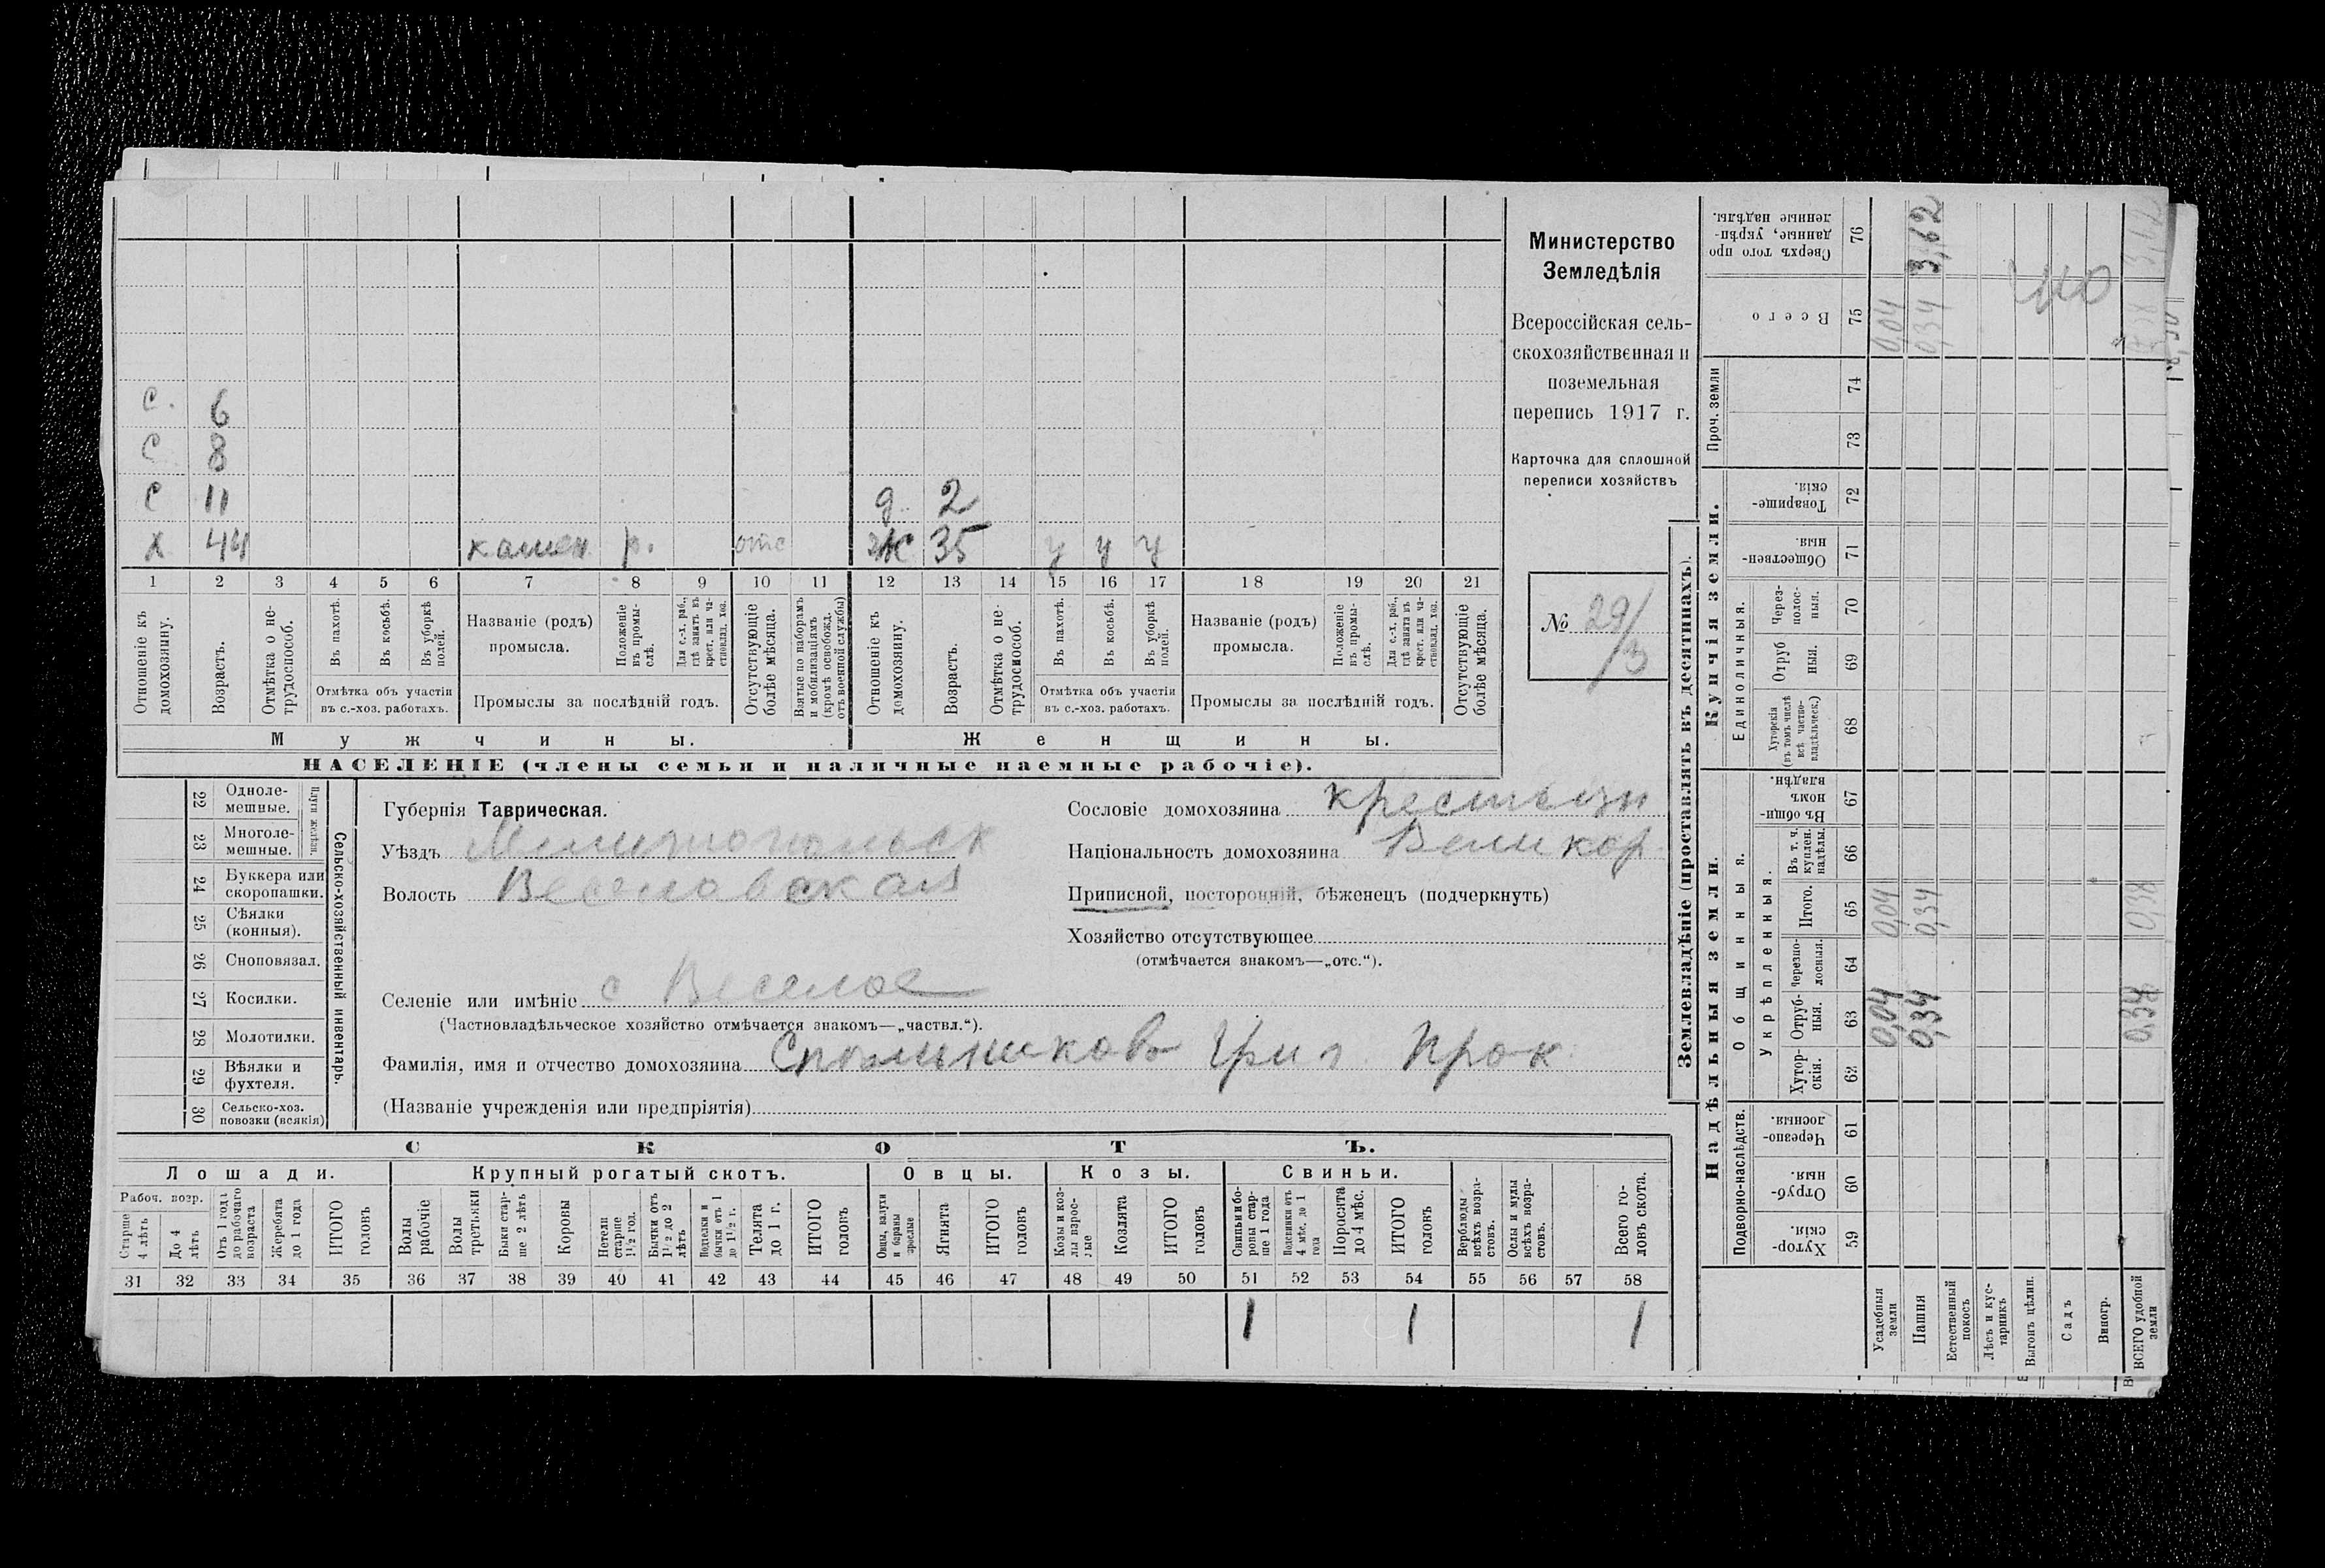 с. 6
с 8
с 11
д. 2
х 44 камен р. отс ж 35 у у у
1 2 3 4 5 6 7 8 9 10 11 12 13 14 15 16 17 18 19 20 21
Отношеніе къ домохозяину.
Возрастъ.
Отмѣтка о нетрудоспособ.
Въ пахотѣ.
Въ косьбѣ.
Въ уборкѣ полей.
Отмѣтка объ участіи
въ с.-хоз. работахъ.
Названіе (родъ)
промысла.
Положеніе въ промыслѣ.
Для с.-х. раб., гдѣ занятъ въ крест. или частновлад. хоз.
Промыслы за послѣдній годъ.
Отсутствующіе болѣе мѣсяца.
Взятые по наборамъ и мобилизаціямъ (кромѣ освобожд. отъ военной службы)
Отношеніе къ домохозяину.
Возрастъ.
Отмѣтка о нетрудоспособ.
Въ пахотѣ.
Въ косьбѣ.
Въ уборкѣ полей.
Отмѣтка объ участіи
въ с.-хоз. работахъ.
Названіе (родъ)
промысла.
Положеніе въ промыслѣ.
Для с.-х. раб., гдѣ занята въ крест. или частновлад. хоз.
Промыслы за послѣдній годъ.
Отсутствующіе болѣе мѣсяца.
Мужчины. Женщины.
НАСЕЛЕНІЕ (члены семьи и наличные наемные рабочіе).
Министерство
Земледѣлія
Всероссійская сель-
скохозяйственная и
поземельная
перепись 1917 г.
Карточка для сплошной
переписи хозяйствъ
№ 29/3
22 Одноле-
мешные.
23 Многоле-
мешные.
Плуги желѣзн.
24 Буккера или
скоропашки.
25 Сѣялки
(конныя).
26 Сноповязал.
27 Косилки.
28 Молотилки.
29 Вѣялки и
фухтеля.
30 Сельско-хоз.
повозки (всякія)
Сельско-хозяйственный инвентарь.
Губернія Таврическая.
Уѣздъ Мелитопольск
Волость Веселовская
Селеніе или имѣніе с Веселое
(Частновладѣльческое хозяйство отмѣчается знакомъ—„частвл.“).
Фамилія, имя и отчество домохозяина Григ Прок
(Названіе учрежденія или предпріятія)
Сословіе домохозяина крестьян
Національность домохозяина Великор
Приписной, посторонній, бѣженецъ (подчеркнуть)
Хозяйство отсутствующее
(отмѣчается знакомъ—„отс.“).
СКОТЪ.
Лошади. Крупный рогатый скотъ. Овцы. Козы. Свиньи.
Рабоч. возр.
Старше 4 лѣтъ
До 4 лѣтъ
Отъ 1 года до рабочаго возраста
Жеребята до 1 года
ИТОГО головъ
Волы рабочіе
Волы третьяки
Быки старше 2 лѣтъ
Коровы
Нетели старше 1½ год.
Бычки отъ 1½ до 2 лѣтъ
Подтелки и бычки отъ 1 до 1½ г.
Телята до 1 г.
ИТОГО головъ
Овцы, валухи и бараны зрѣлые
Ягнята
ИТОГО головъ
Козы и козлы взрослые
Козлята
ИТОГО головъ
Свиньи и боровы старше 1 года
Подсвинки отъ 4 мѣс. до 1 года
Поросята до 4 мѣс.
ИТОГО головъ
Верблюды всѣхъ возрастовъ.
Ослы и мулы всѣхъ возрастовъ.
Всего головъ скота.
31 32 33 34 35 36 37 38 39 40 41 42 43 44 45 46 47 48 49 50 51 52 53 54 55 56 57 58
1 1 1
Землевладѣніе (проставлять въ десятинахъ).
Надѣльныя земли. Купчія земли.
Подворно-наслѣдств.
Общинныя.
Укрѣпленныя.
Единоличныя.
Проч. земли
Сверхъ того проданные, укрѣпленные надѣлы. 76 3,62
Всего 75 0,04 0,34
74
73
Товарищескія. 72
Общественныя. 71
Черезполосныя. 70
Отрубныя. 69
Хуторскія (въ томъ числѣ всѣ частновладѣльческ.) 68
Въ общинномъ владѣн. 67
Въ т. ч. куплен. надѣлы. 66
Итого. 65 0,04 0,34 0,38
Черезполосныя. 64
Отрубныя. 63 0,04 0,34 0,38
Хуторскія. 62
Черезполосныя. 61
Отрубныя. 60
Хуторскія. 59
Усадебныя земли
Пашня
Естественный покосъ
Лѣсъ и кустарникъ
Выгонъ цѣлин.
Садъ
Виногр.
ВСЕГО удобной земли